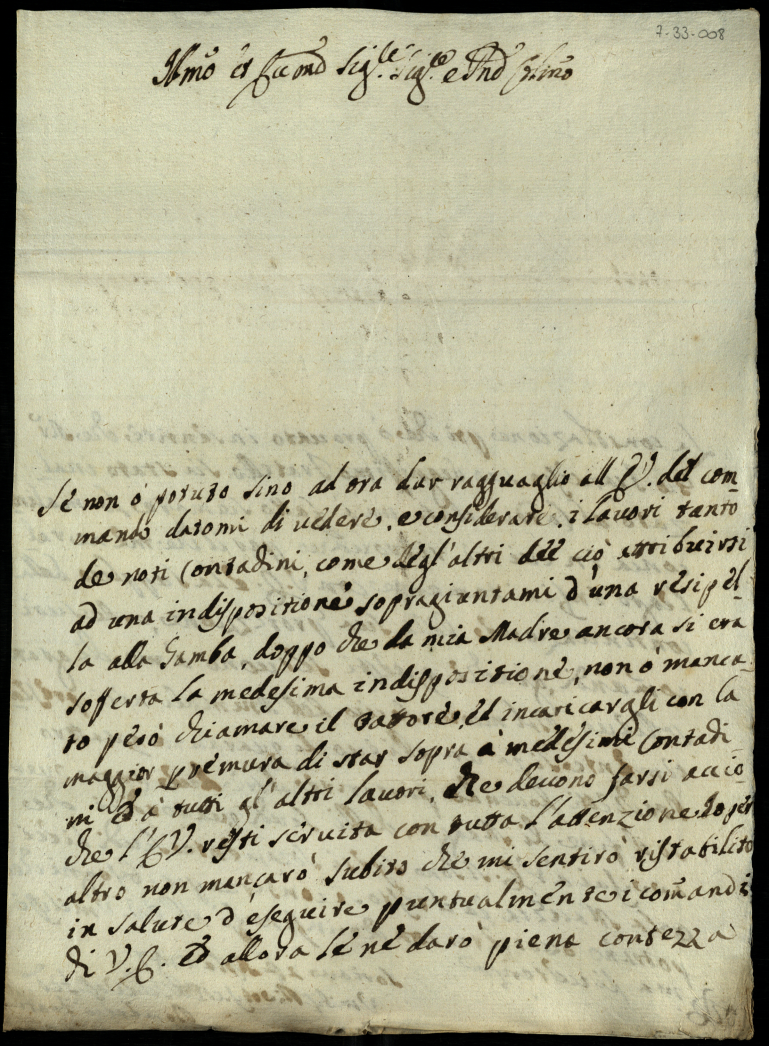 7-33-008
Illmo et Eccmo Sig.re Sig.re e Pne Colmo
Se non ò potuto sino ad ora dar ragguaglio all'E.V. del com-
mando datomi di vedere, e considerare, i lavori tanto
de noti Contadini, come degl'altri deè ciò attribuirsi
ad una indispositione sopragiuntami d'una resipel-
la alla Gamba, doppo che da mia Madre ancora si era
sofferta la medesima indispositione, non ò manca-
to però chiamare il Fattore, et incaricargli con la
maggior premura di star sopra à medesimi Contadi-
ni Ed à tutti gl'altri lavori, che devono farsi acciò
che l'E.V. resti servita con tutta l'attenzione Io per
altro non mancarò subito che mi sentirò ristabilito
in salute d'eseguire puntualmente i comandi
di V.E. Ed allora le ne darò piena contezza